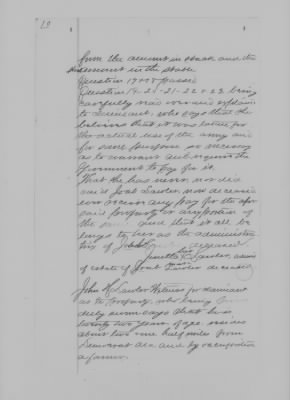 10
from the amount in stack and the
amount in the stable
Question 17 & 18 passed
Question 19-20-21-22 & 23 being
carefully read over and explained
to Claimant, who says that she
believes that it was taken for
the actual use of the army and
for such purpose or necessity
as to warrant and require the
Government to pay for it.
That she has never, nor did
said Joab Lawler, now deceased
ever receive any pay for the afore
said property or any portion of
the and that it all be
longs to her as the administra
trix of Joab deceased
Lawler, admx
of estate of Joab Lawler deceased
John Lawler Witness for claimant
as to property, who being
duly sworn says that he is
twenty two years of age resides
about two and half miles from
Ala. and by occupation
a farmer.